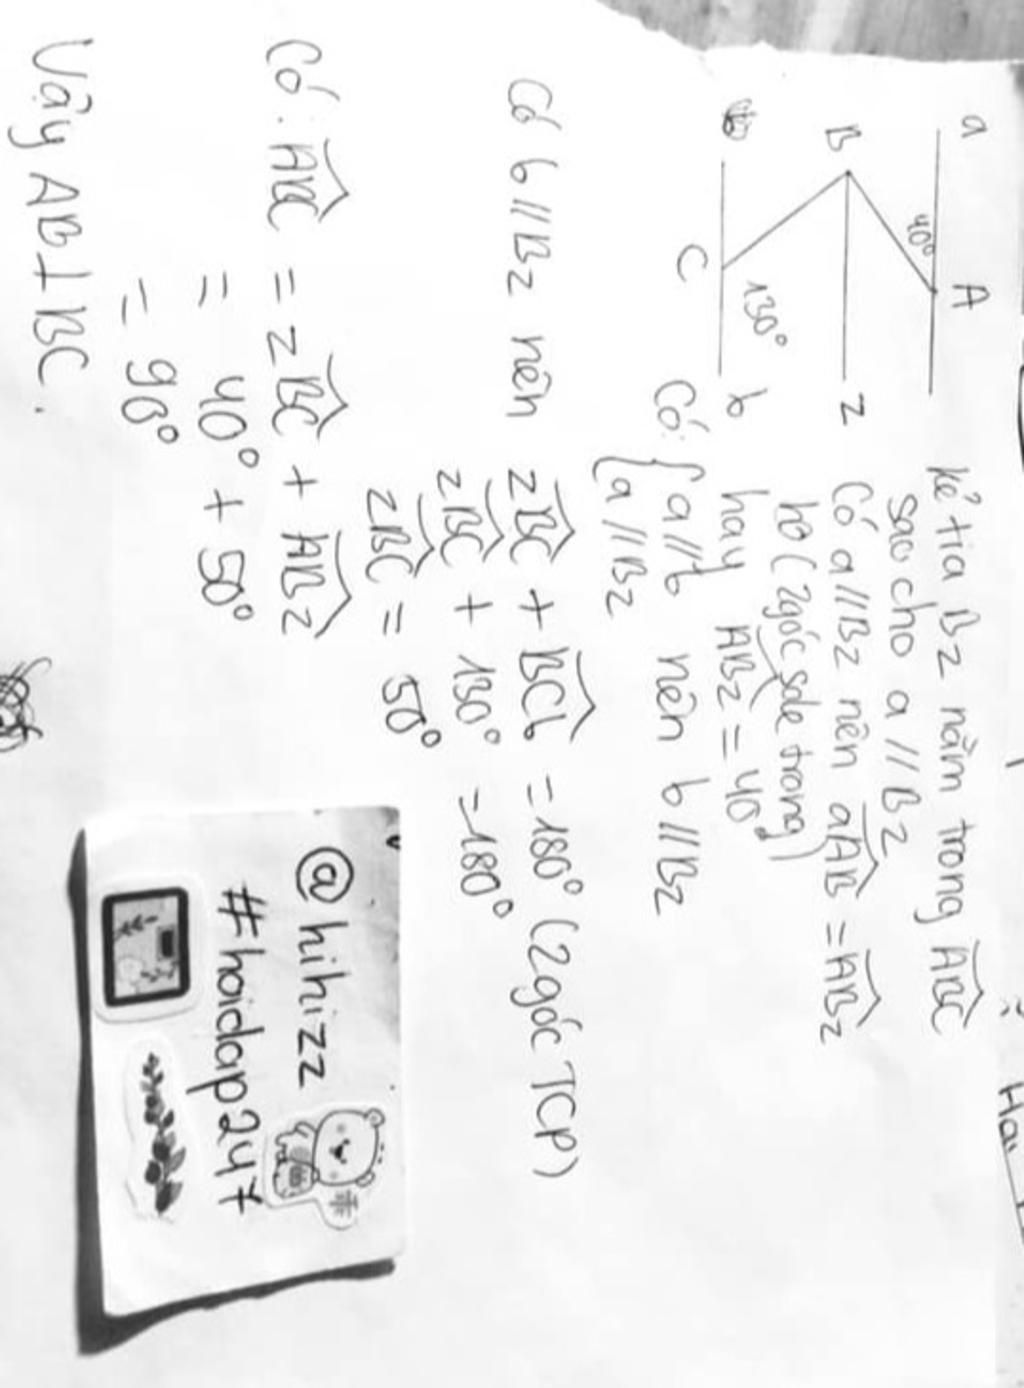 a
A
40°
B
z
130°
C
b
kẻ tia Bz nằm trong ABC
sao cho a // Bz
Có a // Bz nên aAB = ABz
hơ (2 góc sole trong)
hay ABz = 40°
Có: { a // b nên b // Bz
a // Bz
Có b // Bz nên zBC + BCb = 180° (2 góc TCP)
zBC + 130° = 180°
zBC = 50°
Có: ABC = zBC + ABz
= 40° + 50°
= 90°
Vậy AB ⊥ BC.
@hihizz
#hoidap247